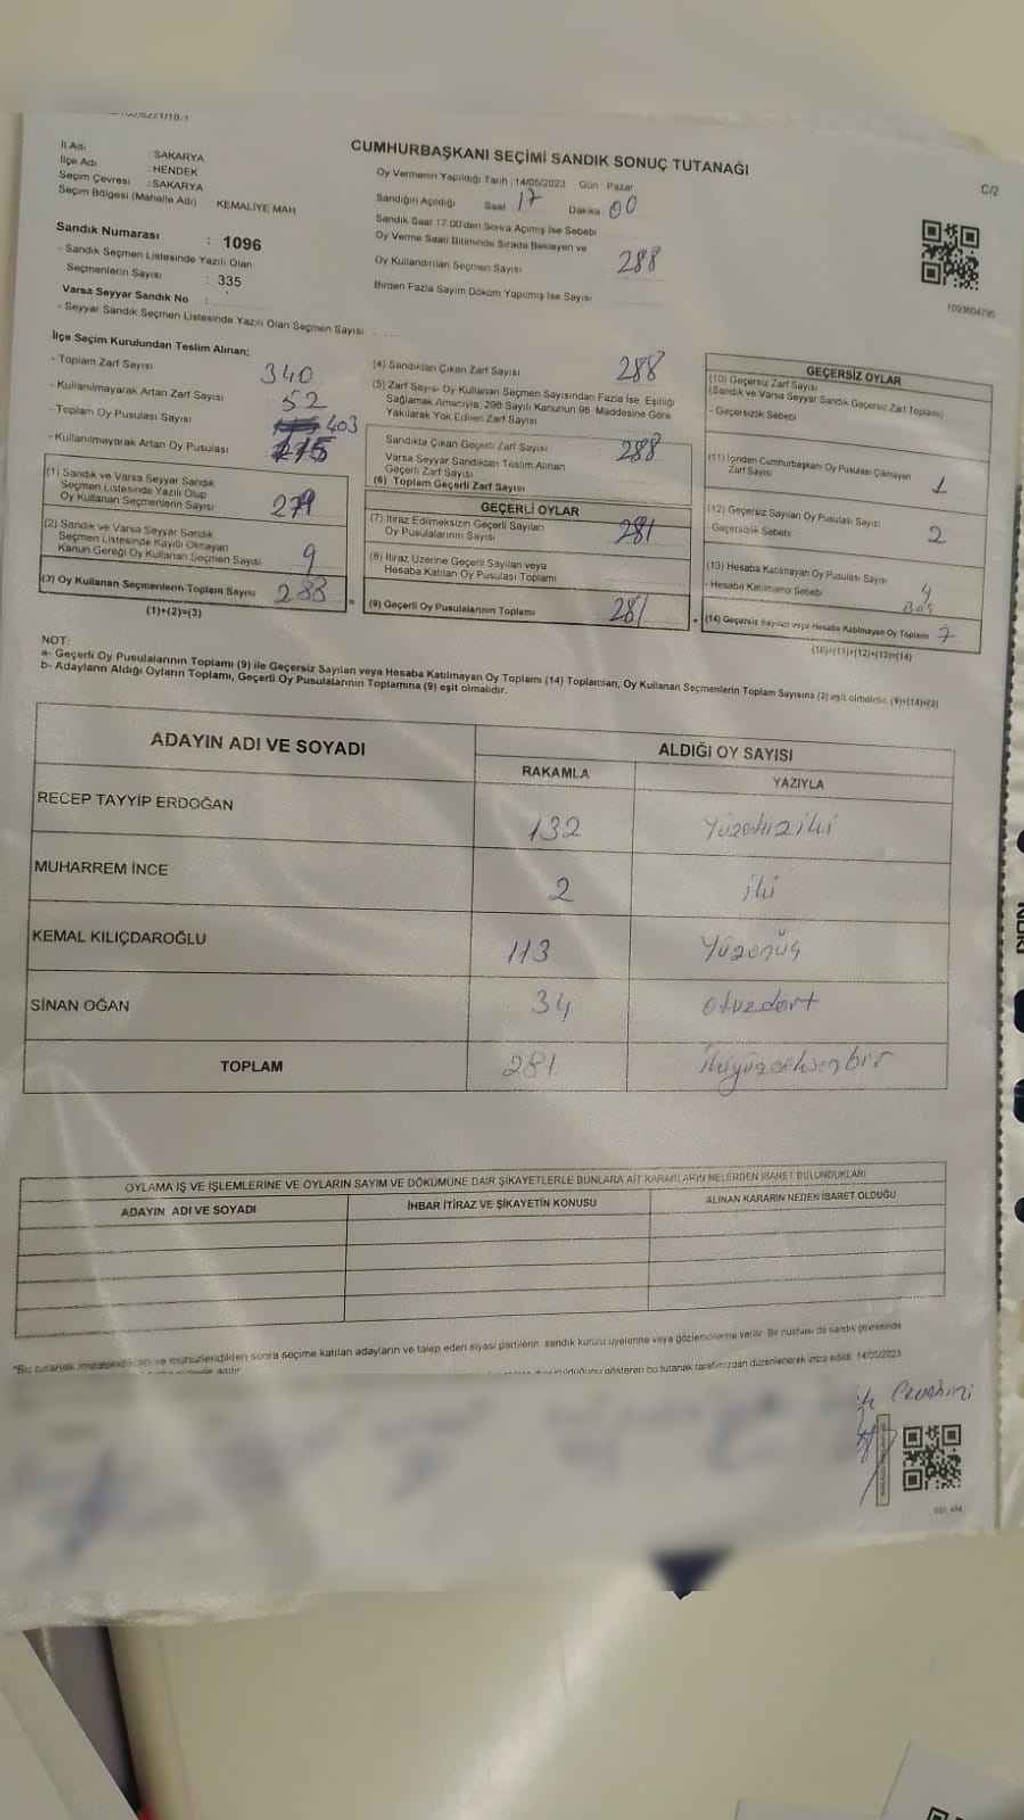 İl Adı : SAKARYA
İlçe Adı : HENDEK
Seçim Çevresi : SAKARYA
Seçim Bölgesi (Mahalle Adı) KEMALİYE MAH
Sandık Numarası : 1096
- Sandık Seçmen Listesinde Yazılı Olan
Seçmenlerin Sayısı : 335
Varsa Seyyar Sandık No :
- Seyyar Sandık Seçmen Listesinde Yazılı Olan Seçmen Sayısı
CUMHURBAŞKANI SEÇİMİ SANDIK SONUÇ TUTANAĞI
C/2
Oy Vermenin Yapıldığı Tarih : 14/05/2023 Gün : Pazar
Sandığın Açıldığı Saat 17 Dakika 00
Sandık Saat 17.00'den Sonra Açılmış İse Sebebi
Oy Verme Saati Bitiminde Sırada Bekleyen ve
Oy Kullandırılan Seçmen Sayısı 288
Birden Fazla Sayım Döküm Yapılmış İse Sayısı
İlçe Seçim Kurulundan Teslim Alınan;
- Toplam Zarf Sayısı 340
- Kullanılmayarak Artan Zarf Sayısı 52
- Toplam Oy Pusulası Sayısı 403
- Kullanılmayarak Artan Oy Pusulası
(1) Sandık ve Varsa Seyyar Sandık
Seçmen Listesinde Yazılı Olup
Oy Kullanan Seçmenlerin Sayısı 279
(2) Sandık ve Varsa Seyyar Sandık
Seçmen Listesinde Kayıtlı Olmayan
Kanun Gereği Oy Kullanan Seçmen Sayısı 9
(3) Oy Kullanan Seçmenlerin Toplam Sayısı 288
(1)+(2)=(3)
(4) Sandıktan Çıkan Zarf Sayısı 288
(5) Zarf Sayısı Oy Kullanan Seçmen Sayısından Fazla İse, Eşitliği
Sağlamak Amacıyla, 298 Sayılı Kanunun 98. Maddesine Göre
Yakılarak Yok Edilen Zarf Sayısı
Sandıkta Çıkan Geçerli Zarf Sayısı 288
Varsa Seyyar Sandıktan Teslim Alınan
Geçerli Zarf Sayısı
(6) Toplam Geçerli Zarf Sayısı
GEÇERLİ OYLAR
(7) İtiraz Edilmeksizin Geçerli Sayılan
Oy Pusulalarının Sayısı 281
(8) İtiraz Üzerine Geçerli Sayılan veya
Hesaba Katılan Oy Pusulası Toplamı
(9) Geçerli Oy Pusulalarının Toplamı 281
GEÇERSİZ OYLAR
(10) Geçersiz Zarf Sayısı
(Sandık ve Varsa Seyyar Sandık Geçersiz Zarf Toplamı)
- Geçersizlik Sebebi
(11) İçinden Cumhurbaşkanı Oy Pusulası Çıkmayan
Zarf Sayısı 1
(12) Geçersiz Sayılan Oy Pusulası Sayısı 2
- Geçersizlik Sebebi
(13) Hesaba Katılmayan Oy Pusulası Sayısı 4
- Hesaba Katılmama Sebebi Boş
(14) Geçersiz Sayılan veya Hesaba Katılmayan Oy Toplamı 7
(10)+(11)+(12)+(13)=(14)
NOT:
a- Geçerli Oy Pusulalarının Toplamı (9) ile Geçersiz Sayılan veya Hesaba Katılmayan Oy Toplamı (14) Toplamları, Oy Kullanan Seçmenlerin Toplam Sayısına (3) eşit olmalıdır. (9)+(14)=(3)
b- Adayların Aldığı Oyların Toplamı, Geçerli Oy Pusulalarının Toplamına (9) eşit olmalıdır.
ADAYIN ADI VE SOYADI ALDIĞI OY SAYISI
RAKAMLA YAZIYLA
RECEP TAYYİP ERDOĞAN 132 Yüzotuziki
MUHARREM İNCE 2 iki
KEMAL KILIÇDAROĞLU 113 Yüzonüç
SİNAN OĞAN 34 otuzdört
TOPLAM 281 ikiyüzseksenbir
OYLAMA İŞ VE İŞLEMLERİNE VE OYLARIN SAYIM VE DÖKÜMÜNE DAİR ŞİKAYETLERLE BUNLARA AİT KARARLARIN NELERDEN İBARET BULUNDUKLARI
ADAYIN ADI VE SOYADI İHBAR İTİRAZ VE ŞİKAYETİN KONUSU ALINAN KARARIN NEDEN İBARET OLDUĞU
sonra seçime katılan adayların ve talep eden siyasi partilerin sandık kurulu üyelerine veya gözlemcilerine verilir. Bir nüshası da sandık çevresinde
gösteren bu tutanak tarafımızdan düzenlenerek imza edildi. 14/05/2023